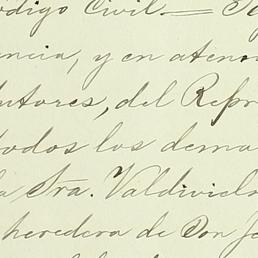 ódigo Civil.=
ncia, y en aten
utores, del Repr
todos los dema
a Sra. Valdiviels
heredera de Don J